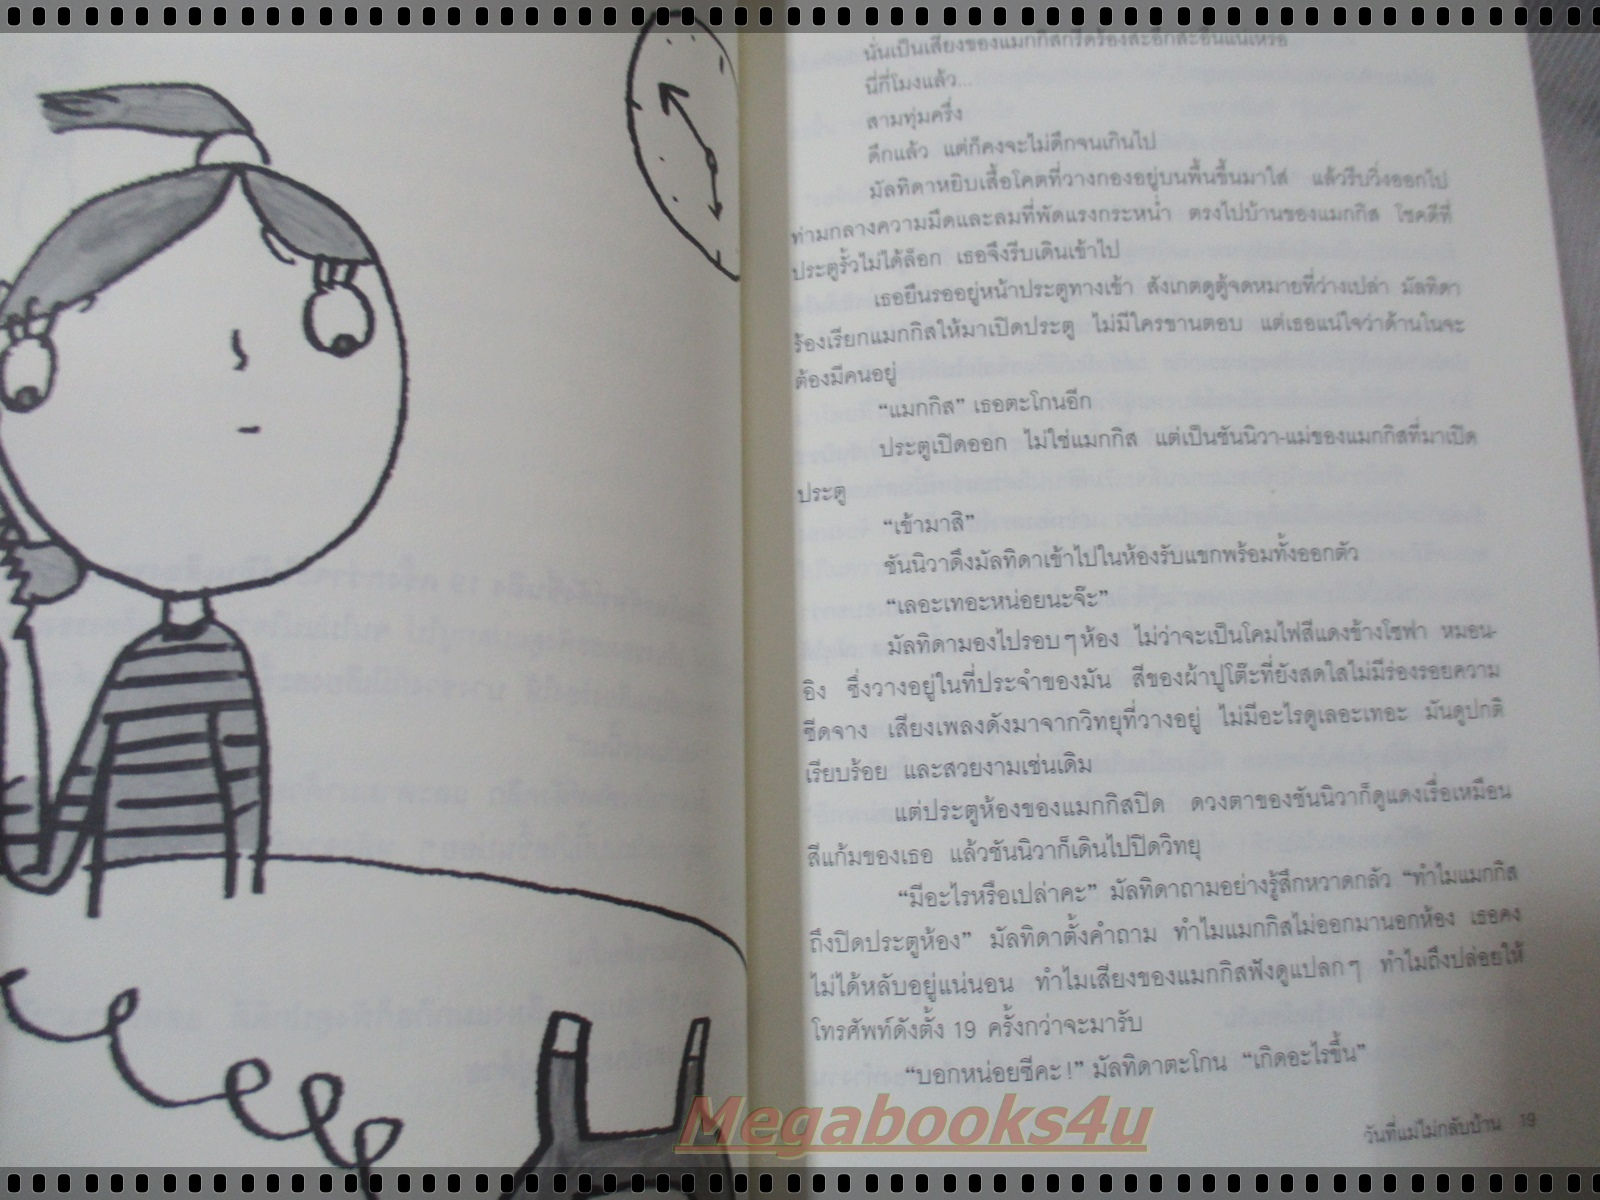 นั่นเป็นเสียงของแมกกิสกรีดร้องสะอึกสะอื้นแน่เหรอ
นี่กี่โมงแล้ว...
สามทุ่มครึ่ง
ดึกแล้ว แต่ก็คงจะไม่ดึกจนเกินไป
มัลทิดาหยิบเสื้อโคตที่วางกองอยู่บนพื้นขึ้นมาใส่ แล้วรีบวิ่งออกไป
ท่ามกลางความมืดและลมที่พัดแรงกระหน่ำ ตรงไปบ้านของแมกกิส โชคดีที่
ประตูรั้วไม่ได้ล็อก เธอจึงรีบเดินเข้าไป
เธอยืนรออยู่หน้าประตูทางเข้า สังเกตดูตู้จดหมายที่ว่างเปล่า มัลทิดา
ร้องเรียกแมกกิสให้มาเปิดประตู ไม่มีใครขานตอบ แต่เธอแน่ใจว่าด้านในจะ
ต้องมีคนอยู่
“แมกกิส” เธอตะโกนอีก
ประตูเปิดออก ไม่ใช่แมกกิส แต่เป็นซันนิวา-แม่ของแมกกิสที่มาเปิด
ประตู
“เข้ามาสิ”
ซันนิวาดึงมัลทิดาเข้าไปในห้องรับแขกพร้อมทั้งออกตัว
“เลอะเทอะหน่อยนะจ๊ะ”
มัลทิดามองไปรอบๆห้อง ไม่ว่าจะเป็นโคมไฟสีแดงข้างโซฟา หมอน-
อิง ซึ่งวางอยู่ในที่ประจำของมัน สีของผ้าปูโต๊ะที่ยังสดใสไม่มีร่องรอยความ
ซีดจาง เสียงเพลงดังมาจากวิทยุที่วางอยู่ ไม่มีอะไรดูเลอะเทอะ มันดูปกติ
เรียบร้อย และสวยงามเช่นเดิม
แต่ประตูห้องของแมกกิสปิด ดวงตาของซันนิวาก็ดูแดงเรื่อเหมือน
สีแก้มของเธอ แล้วซันนิวาก็เดินไปปิดวิทยุ
“มีอะไรหรือเปล่าคะ” มัลทิดาถามอย่างรู้สึกหวาดกลัว “ทำไมแมกกิส
ถึงปิดประตูห้อง” มัลทิดาตั้งคำถาม ทำไมแมกกิสไม่ออกมานอกห้อง เธอคง
ไม่ได้หลับอยู่แน่นอน ทำไมเสียงของแมกกิสฟังดูแปลกๆ ทำไมถึงปล่อยให้
โทรศัพท์ดังตั้ง 19 ครั้งกว่าจะมารับ
“บอกหน่อยซีคะ!” มัลทิดาตะโกน “เกิดอะไรขึ้น”
วันที่แม่ไม่กลับบ้าน 19
Megabooks4u